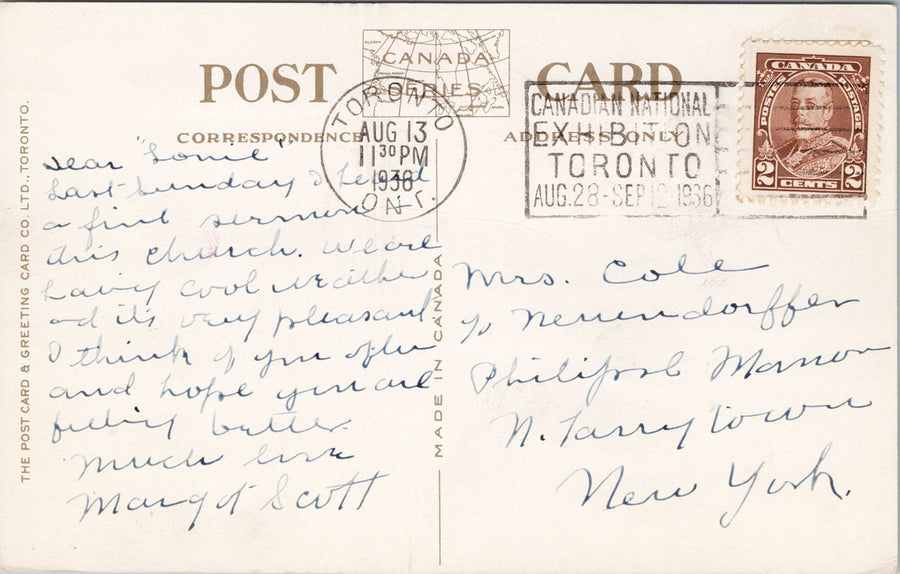 POST CARD
CANADA
SERIES
CORRESPONDENCE
ADDRESS ONLY
TORONTO
AUG 13
11 30 PM
1936
ONT.
CANADIAN NATIONAL
EXHIBITION
TORONTO
AUG. 28 - SEP 12 1936
CANADA
POSTES POSTAGE
2 CENTS 2
THE POST CARD & GREETING CARD CO. LTD., TORONTO.
Dear "Lonie"
Last Sunday I heard
a fine sermon
this church. We are
having cool weather
and it's very pleasant
I think of you often
and hope you are
feeling better.
Much love
Margot Scott
MADE IN CANADA
Mrs. Cole
c/o Neuendorffer
Manor
N. Tarrytown
New York.